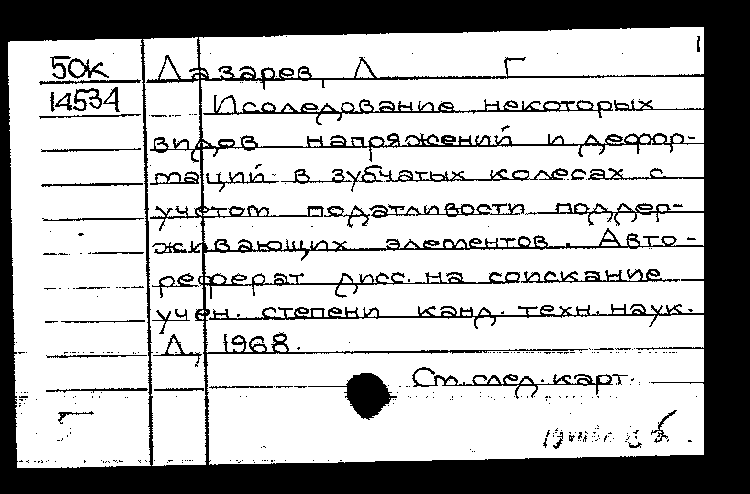 1
50к Лазарев, Л Г
14534 Исследование некоторых
видов напряжений и дефор-
маций в зубчатых колесах с
учетом податливости поддер-
живающих элементов. Авто-
реферат дисс. на соискание
учен. степени канд. техн. наук.
Л., 1968.
См. след. карт.